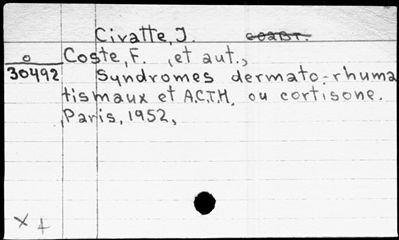 Civatte, J. coast.
o Coste, F. , et aut.,
30492 Syndromes dermato-rhuma
tismaux et A.C.T.H. ou cortisone.
, Paris, 1952,
x +